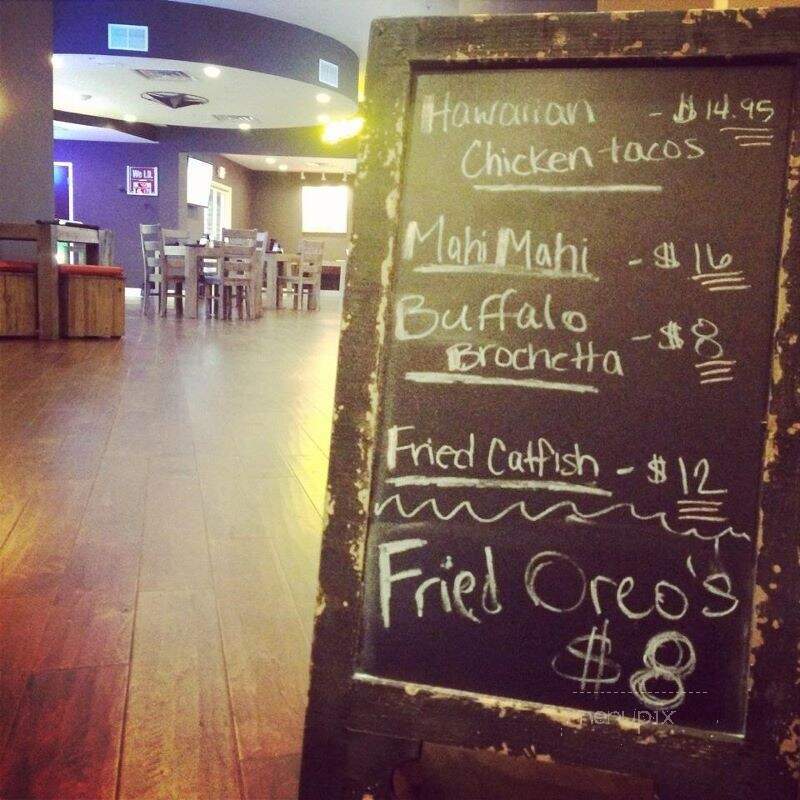 Hawaiian - $14.95
Chicken tacos
Mahi Mahi - $16
Buffalo
Brochetta - $8
Fried Catfish - $12
Fried Oreo's
$8
menupix